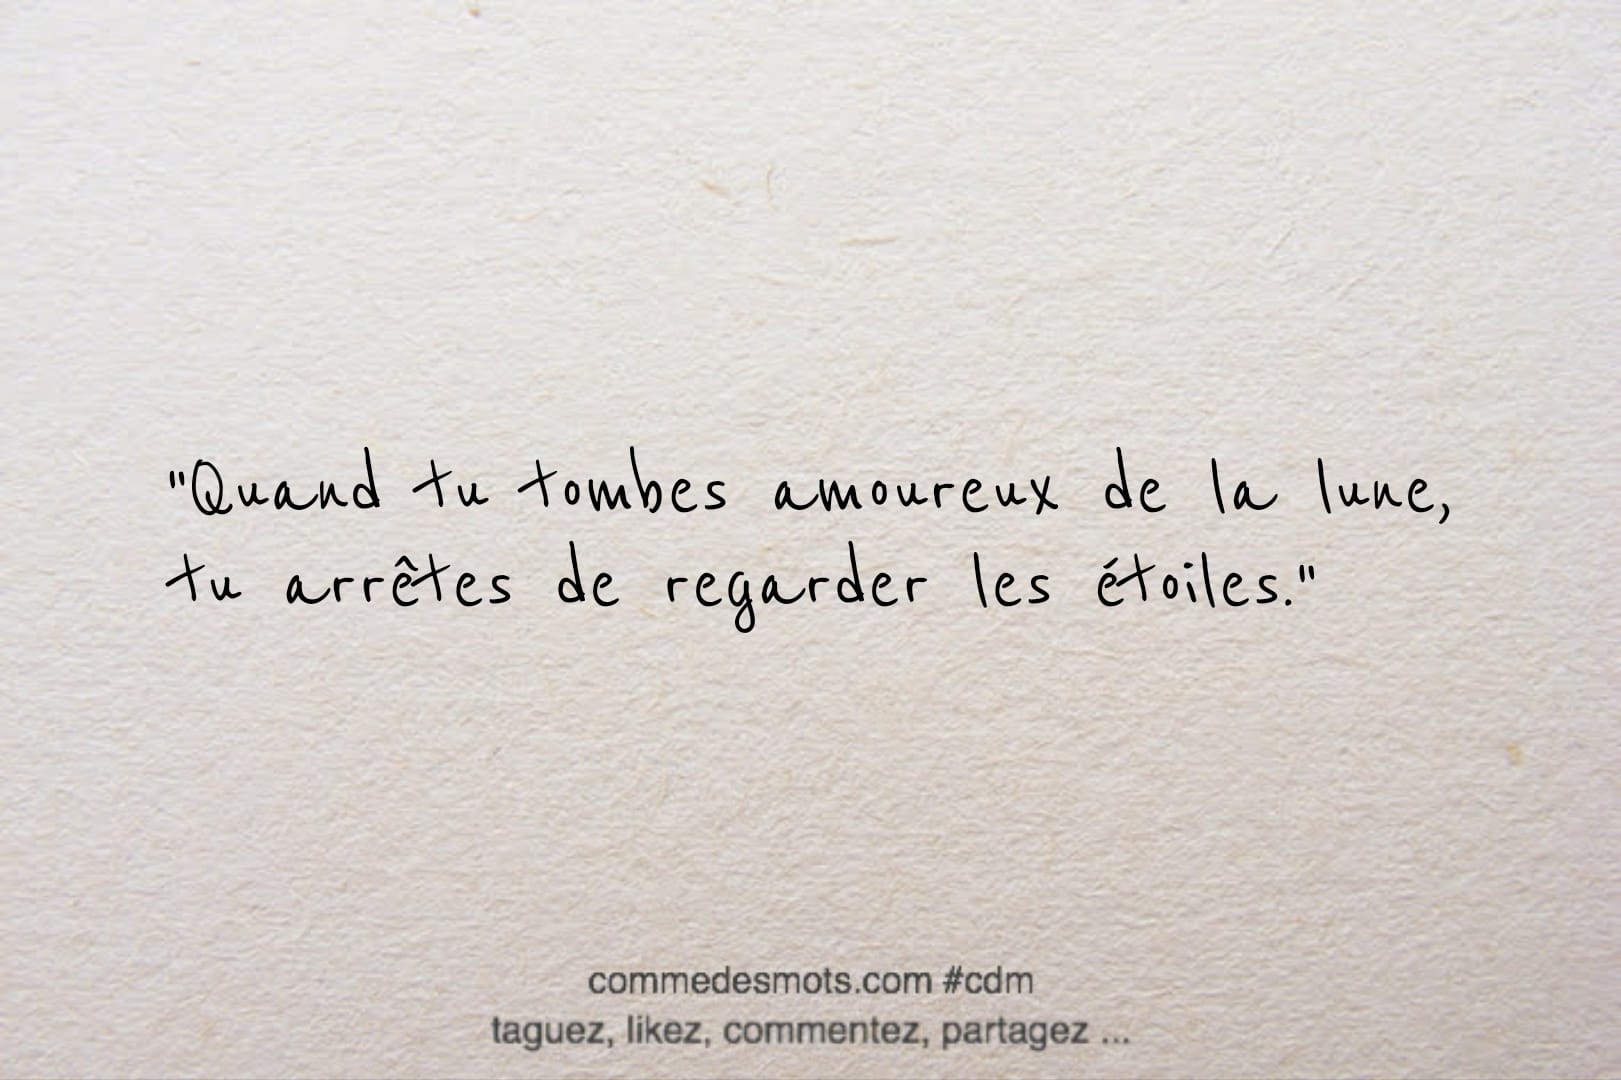 "Quand tu tombes amoureux de la lune,
tu arrêtes de regarder les étoiles."
commedesmots.com #cdm
taguez, likez, commentez, partagez ...